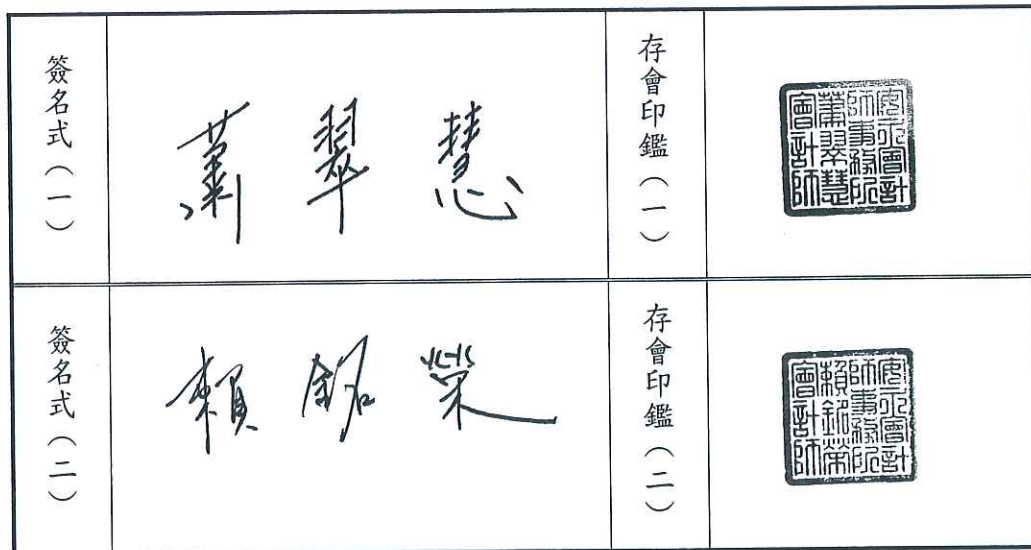 簽名式（一）
蕭翠慧
存會印鑑（一）
安永會計
師事務所
蕭翠慧
會計師
簽名式（二）
賴銘榮
存會印鑑（二）
安永會計
師事務所
賴銘榮
會計師